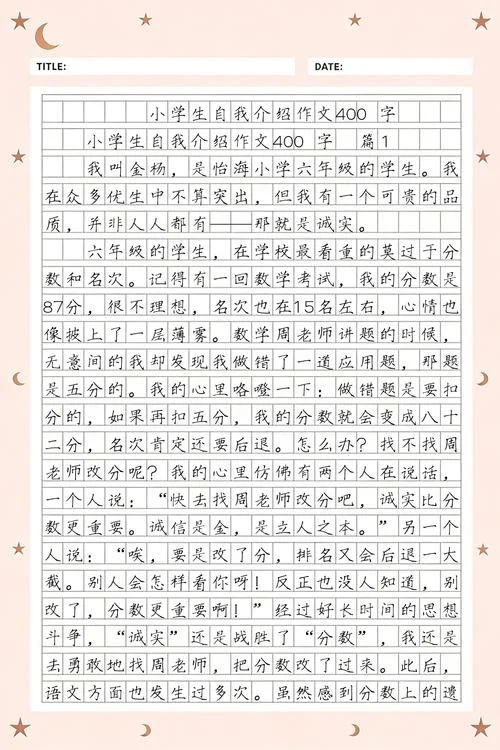 TITLE: DATE:
小学生自我介绍作文400 字
小学生自我介绍作文400 字 篇1
我叫金杨，是怡海小学六年级的学生。我
在众多优生中不算突出，但我有一个可贵的品
质，并非人人都有——那就是诚实。
六年级的学生，在学校最看重的莫过于分
数和名次。记得有一回数学考试，我的分数是
87分，很不理想，名次也在15名左右，心情也
像披上了一层薄雾。数学周老师讲题的时候，
无意间的我却发现我做错了一道应用题，那题
是五分的。我的心里咯噔一下：做错题是要扣
分的，如果再扣五分，我的分数就会变成八十
二分，名次肯定还要后退。怎么办？找不找周
老师改分呢？我的心里仿佛有两个人在说话，
一个人说：“快去找周老师改分吧，诚实比分
数更重要。诚信是金，是立人之本。”另一个
人说：“唉，要是改了分，排名又会后退一大
截。别人会怎样看你呀！反正也没人知道，别
改了，分数更重要啊！”经过好长时间的思想
斗争，“诚实”还是战胜了“分数”，我还是
去勇敢地找周老师，把分数改了过来。此后，
语文方面也发生过多次。虽然感到分数上的遗